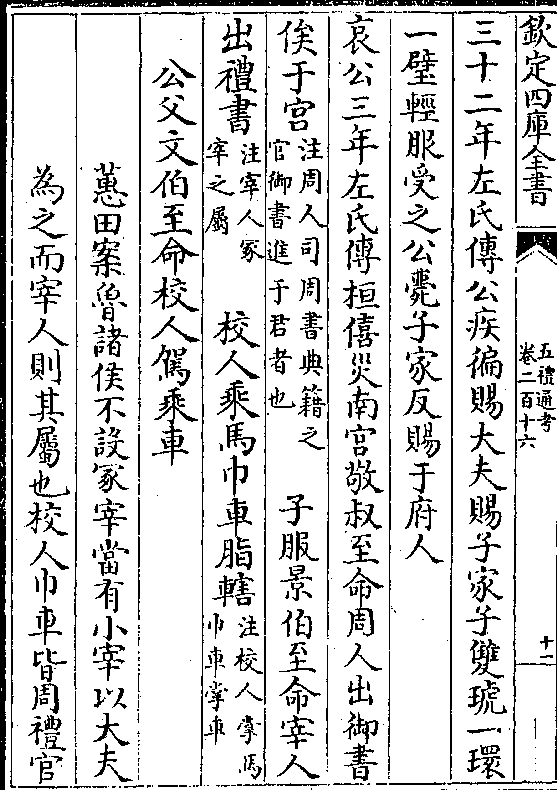 欽定四庫全書
五禮通考
卷二百十六
十一
三十二年左氏傳公疾徧賜大夫賜子家子雙琥一環
一璧輕服受之公薨子家反賜于府人
哀公三年左氏傳桓僖災南宮敬叔至命周人出御書
俟于宮注周人司周書典籍之官御書進于君者也 子服景伯至命宰人
出禮書注宰人冢宰之屬 校人乘馬巾車脂轄注校人掌馬巾車掌車
公父文伯至命校人駕乘車
蕙田案魯諸侯不設冢宰當有小宰以大夫
為之而宰人則其屬也校人巾車皆周禮官